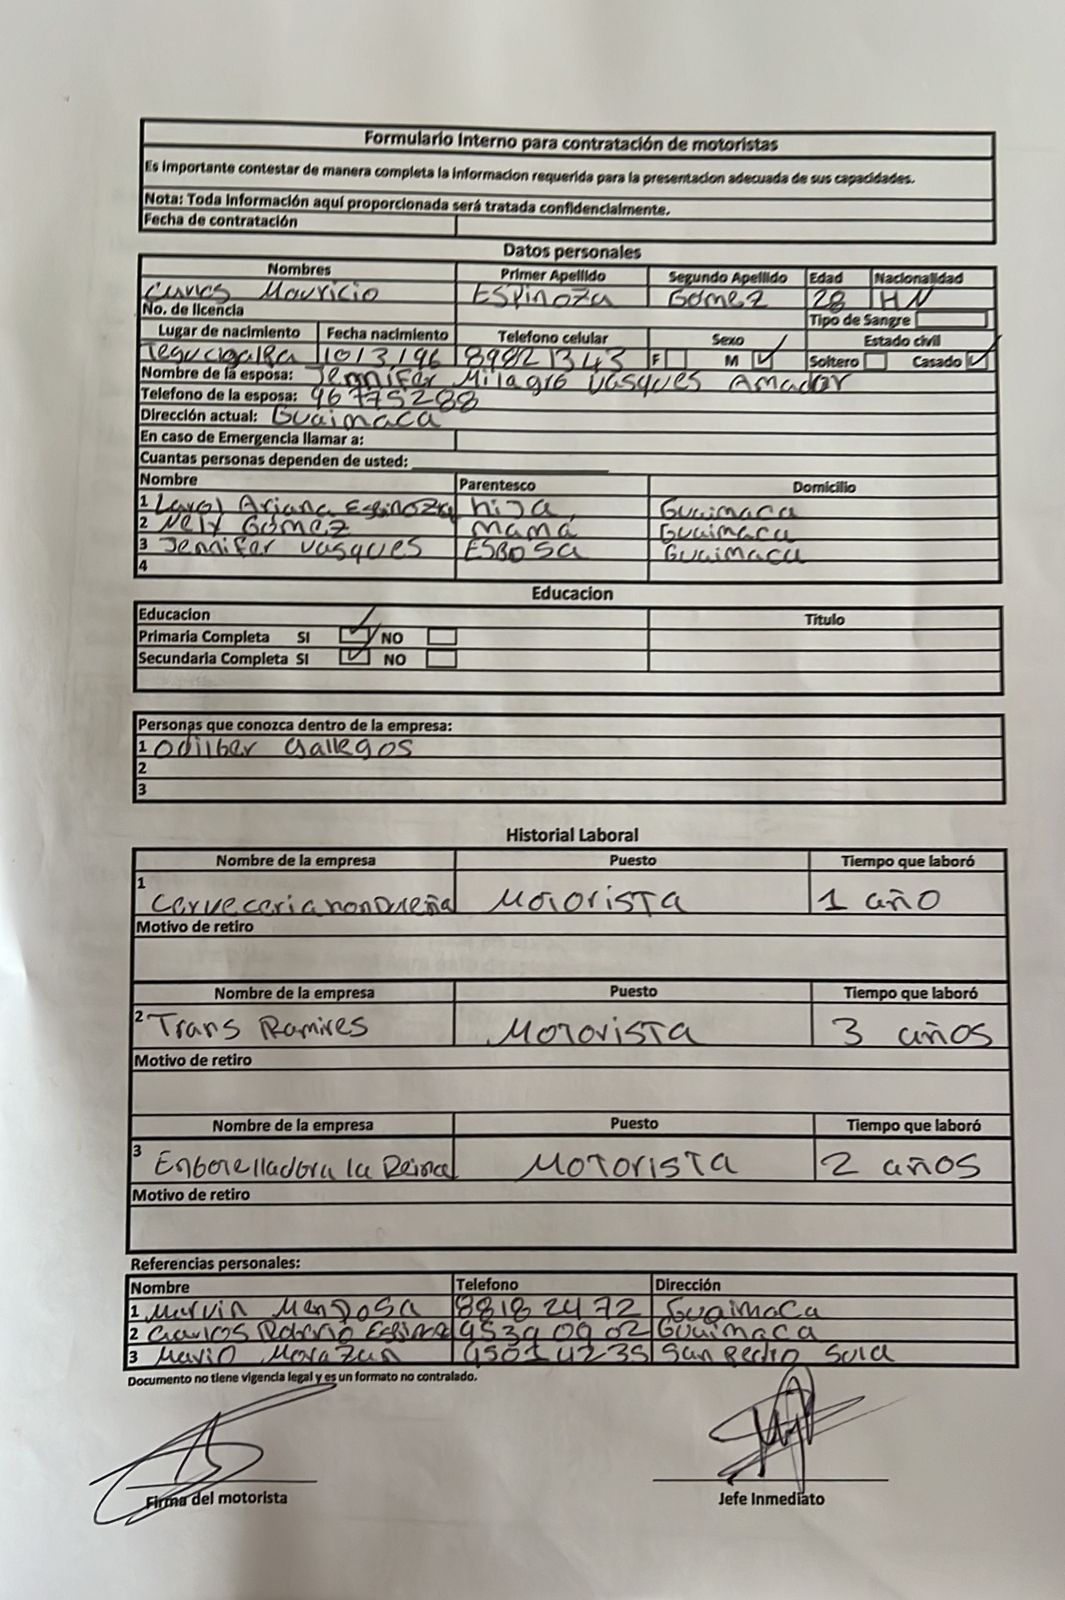 Formulario Interno para contratación de motoristas
Es importante contestar de manera completa la informacion requerida para la presentacion adecuada de sus capacidades.
Nota: Toda información aquí proporcionada será tratada confidencialmente.
Fecha de contratación
Datos personales
Nombres Primer Apellido Segundo Apellido Edad Nacionalidad
Mauricio Espinoza Gomez 28 HN
No. de licencia Tipo de Sangre
Lugar de nacimiento Fecha nacimiento Telefono celular Sexo Estado civil
Tegucigalpa 10/3/96 89821343 F M Soltero Casado
Nombre de la esposa: Jennifer Milagro Vasques Amador
Telefono de la esposa: 96775288
Dirección actual: Guaimaca
En caso de Emergencia llamar a:
Cuantas personas dependen de usted:
Nombre Parentesco Domicilio
1 Ariana Espinoza hija, Guaimaca
2 Nely Gómez mamá Guaimaca
3 Jennifer Vasques ESBOSA Guaimaca
4
Educacion
Educacion Titulo
Primaria Completa SI NO
Secundaria Completa SI NO
Personas que conozca dentro de la empresa:
1 Odilber Gallegos
2
3
Historial Laboral
Nombre de la empresa Puesto Tiempo que laboró
1 Cerveceria hondureña Motorista 1 año
Motivo de retiro
Nombre de la empresa Puesto Tiempo que laboró
2 Trans Ramires Motorista 3 años
Motivo de retiro
Nombre de la empresa Puesto Tiempo que laboró
3 Enborelladora la Reina Motorista 2 años
Motivo de retiro
Referencias personales:
Nombre Telefono Dirección
1 Marvin Mendosa 88182472 Guaimaca
2 Carlos Roberto 95390902 Guaimaca
3 Mario Morazan San Pedro Sula
Documento no tiene vigencia legal y es un formato no contralado.
Firma del motorista Jefe Inmediato